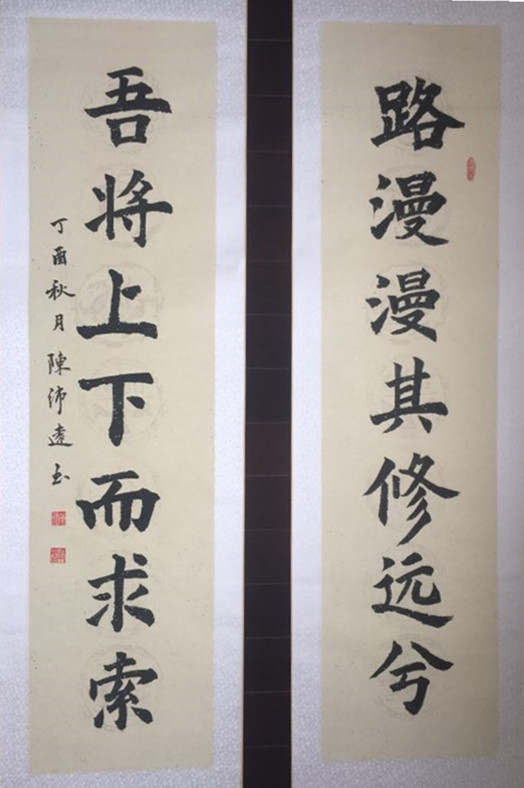 路漫漫其修远兮
吾将上下而求索
丁酉秋月陳沛遠书